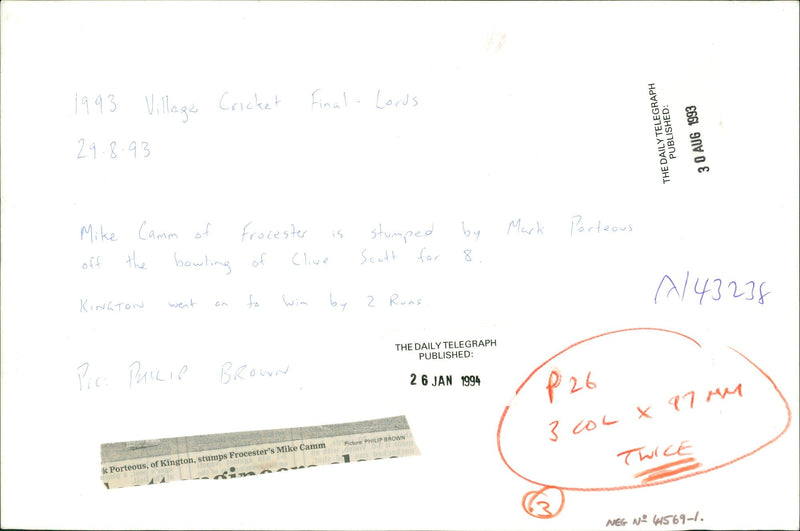 1993 Village Cricket Final - Lords
29.8.93
THE DAILY TELEGRAPH
PUBLISHED:
30 AUG 1993
Mike Camm of Frocester is stumped by Mark Porteous
off the bowling of Clive Scott for 8.
KINGTON went on to win by 2 Runs
A/43238
Pic: PHILIP BROWN.
THE DAILY TELEGRAPH
PUBLISHED:
26 JAN 1994
P26
3 COL X 97 MM
TWICE
3
k Porteous, of Kington, stumps Frocester's Mike Camm
Picture: PHILIP BROWN
NEG Nº 41569-1.